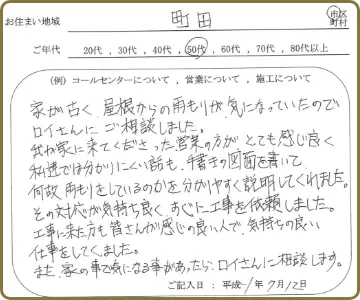 お住まい地域 町田 市区町村
ご年代 20代，30代，40代，50代，60代，70代，80代以上
（例）コールセンターについて，営業について，施工について
家が古く、屋根からの雨もりが気になっていたので
ロイさんにご相談しました。
我が家に来てくださった営業の方がとても感じ良く
私達では分かりにくい話も、手書きの図面を書いて、
何故雨もりをしているのかを分かりやすく説明してくれました。
その対応が気持ち良く、すぐに工事を依頼しました。
工事に来た方も皆さんが感じの良い人で、気持ちの良い
仕事をしてくました。
また、家の事で気になる事があったら、ロイさんに相談します。
ご記入日：平成 年 7月12日